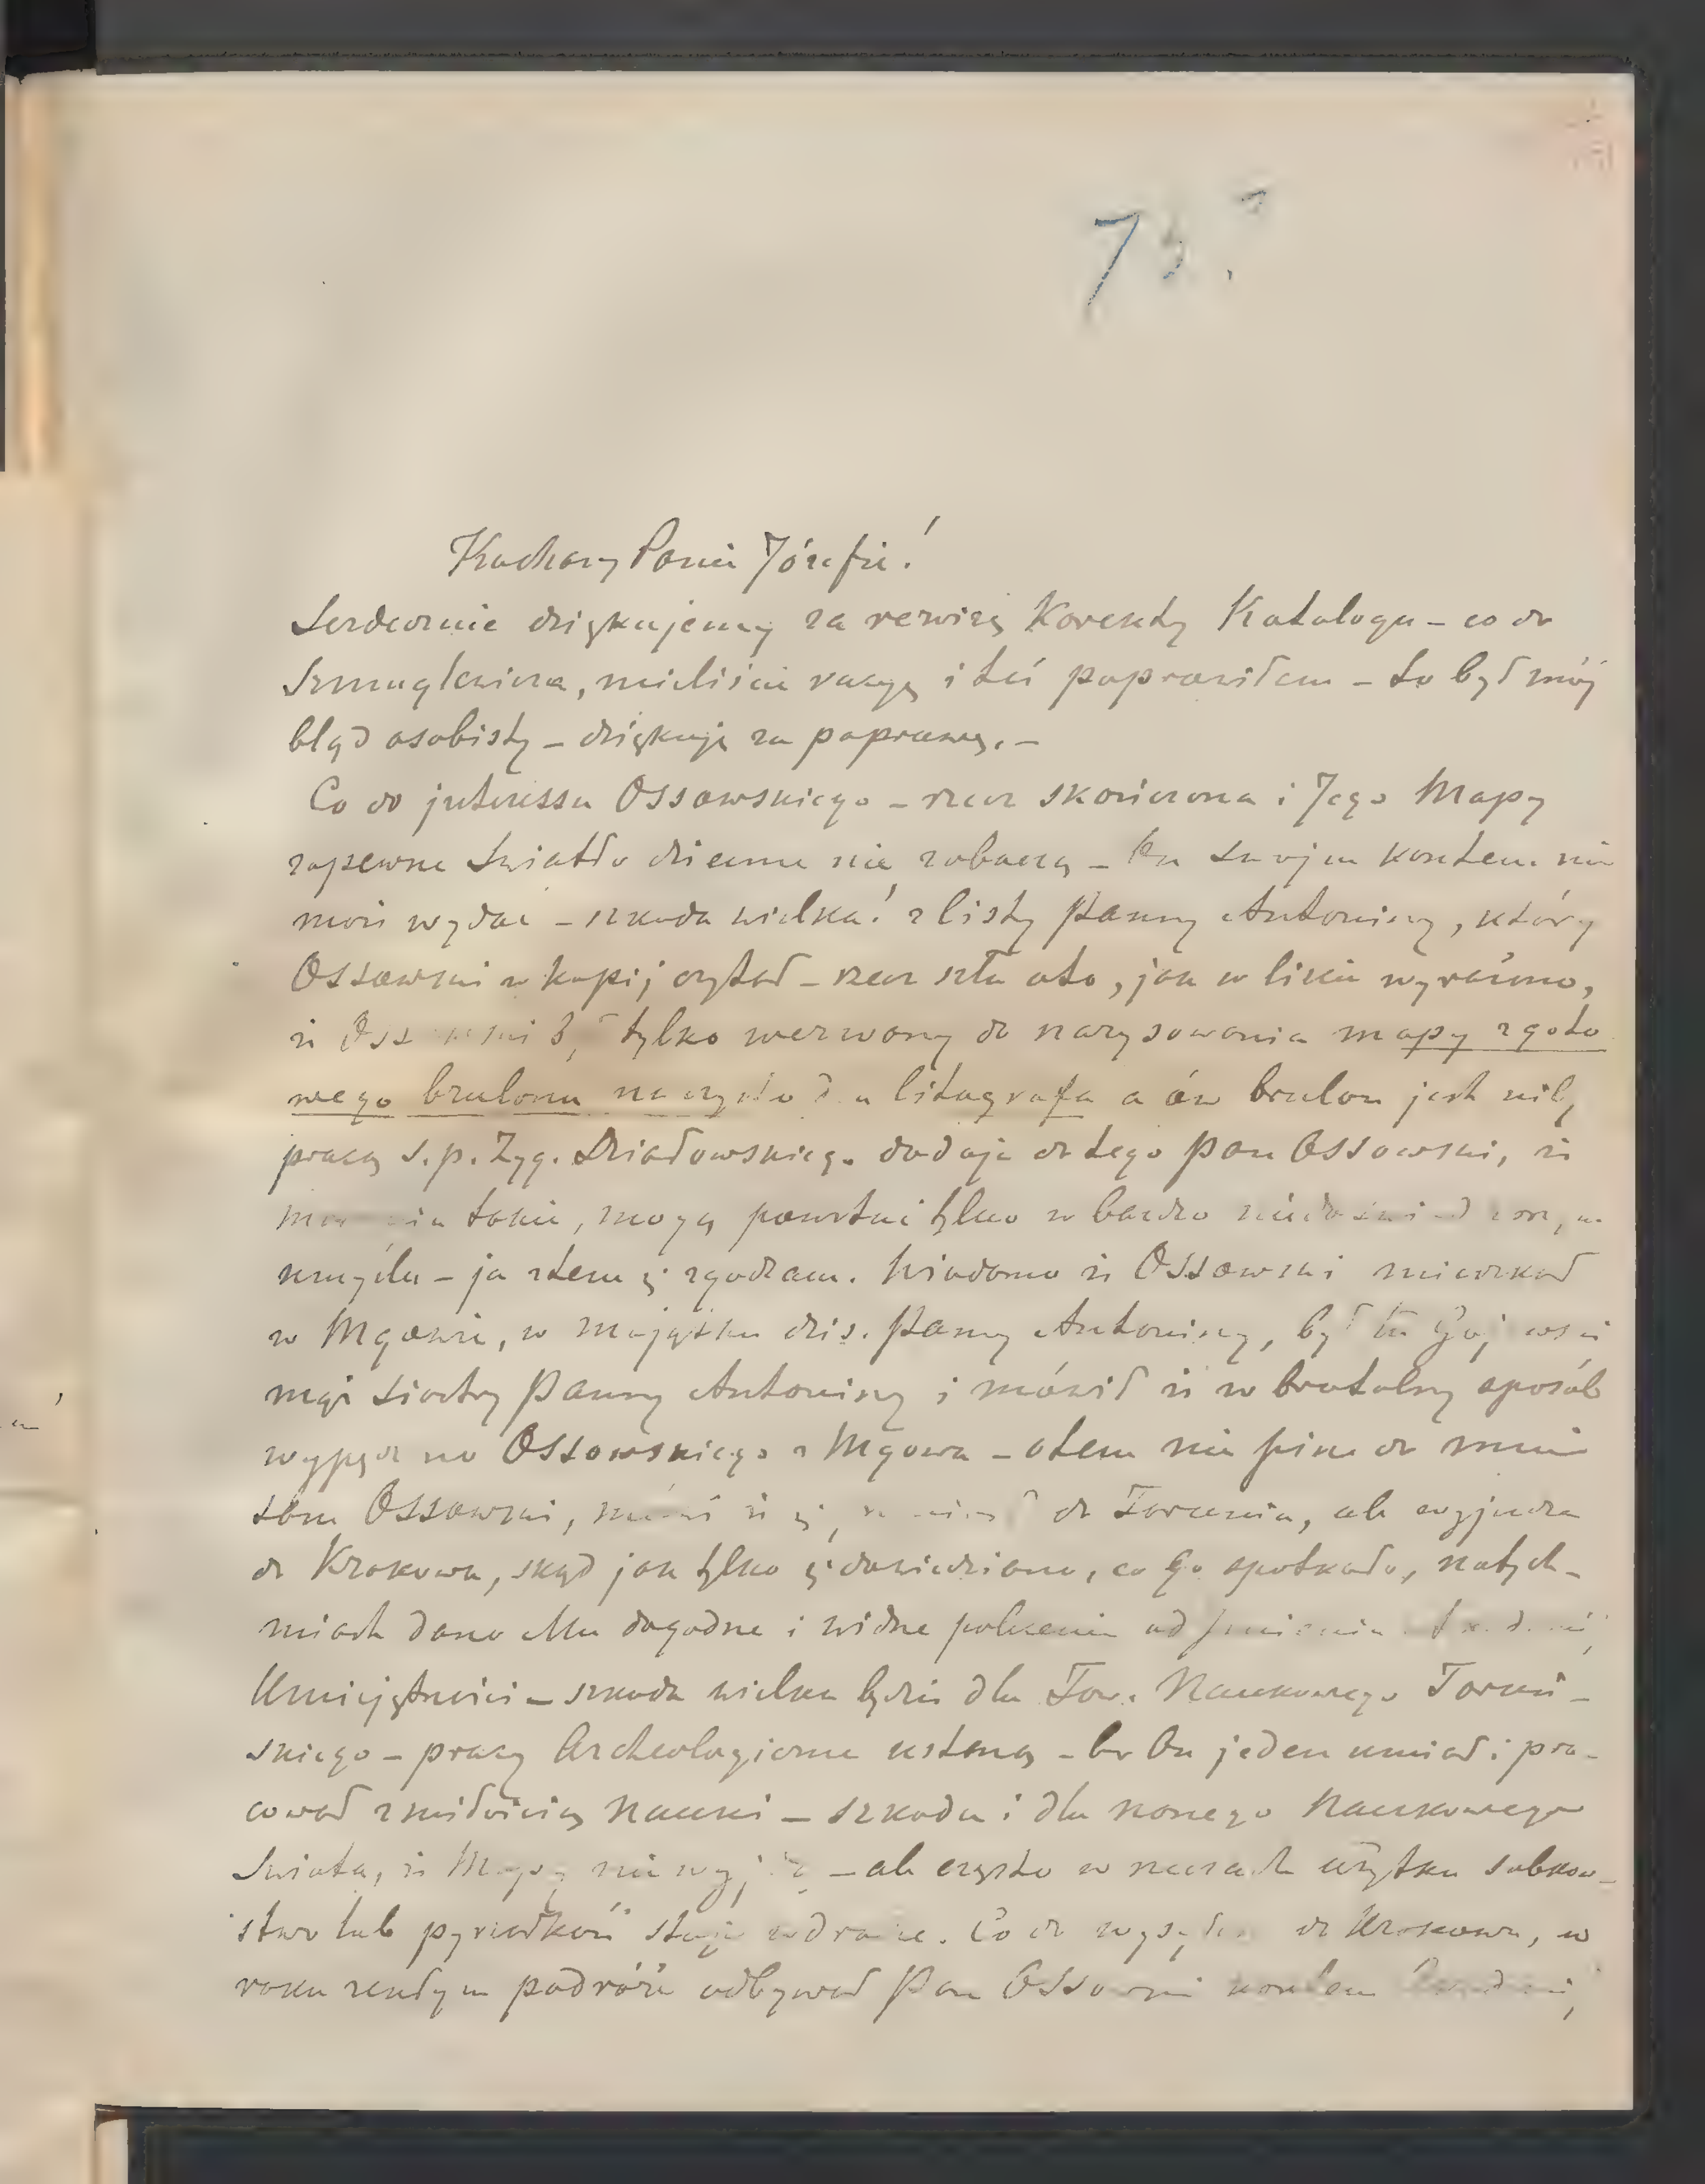 Kochany Panie Józefie!
Serdecznie dziękujemy za rewizę Korekty Katalogu – co do
Szmuglewicza, mieliście racyę i też poprawiłem – to był mój
błąd osobisty – dziękuję za poprawę. –
Co do interessu Ossowskiego – rzecz skończona i Jego Mapy
zapewne Swiatło dzienne nie zobaczą – On swojem kosztem nie
może wydać – szkoda wielka! z listy Panny Antoniny, który
Ossowski w kopij czytał – rzecz szła oto, jak w liście wyraźno,
iż Ossowski był tylko wezwany do narysowania mapy z goto
wego brulonu na czysto dla litografa a ów brulon jest niby
pracą ś. p. Zyg. Działowskiego dodaje do tego Pan Ossowski, iż
takie, mogą powstać tylko w bardzo
umyśle – ja z tem się zgadzam. Wiadomo iż Ossowski mieszkał
w Mgowie, w majątku dziś. Panny Antoniny, był tu
mąż Siostry Panny Antoniny i mówił iż w brutalny sposób
wypędzono Ossowskiego z Mgowa – o tem nie pisze do mnie
sam Ossowski, iż się do Torunia, ale wyjeżdza
do Krakowa, skąd jak tylko się dowiedziano, co go spotkało, natych-
miast dano Mu dogodne i widne polecenie od
Umiejętności – szkoda wielka będzie dla Tow. Naukowego Toruń-
skiego – pracy Archeologiczne ustaną – bo On jeden umiał i pra-
cował z miłością Nauki – szkoda i dla naszego Naukowego
Swiata, iż Mapy nie wyjdą – ale często w rzeczach użytku sobkow-
stwo lub pyrzedkość staje w drodze. Co do do Krakowa, w
roku zeszłym podróże odbywał Pan Ossowski kosztem